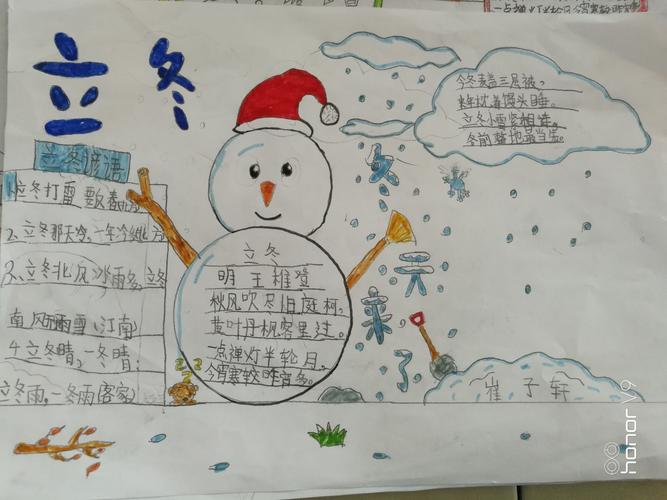 一点禅灯半轮月,今宵寒较昨宵
立冬
立冬谚语
1、立冬打雷要
2、立冬那天冷,一年冷
3、立冬北风冰雨多,立冬
南风雨雪(江南)
4立冬晴,一冬晴;
立冬雨,一冬雨(客家)
立冬
明 王稚登
秋风吹尽旧庭柯,
黄叶丹枫客里过。
一点禅灯半轮月,
今宵寒较昨宵多。
z z z
今冬麦盖三层被,
来年枕着馒头睡。
立冬小雪紧相连,
冬前整地最当紧。
冬天来了
崔子轩
honor V9